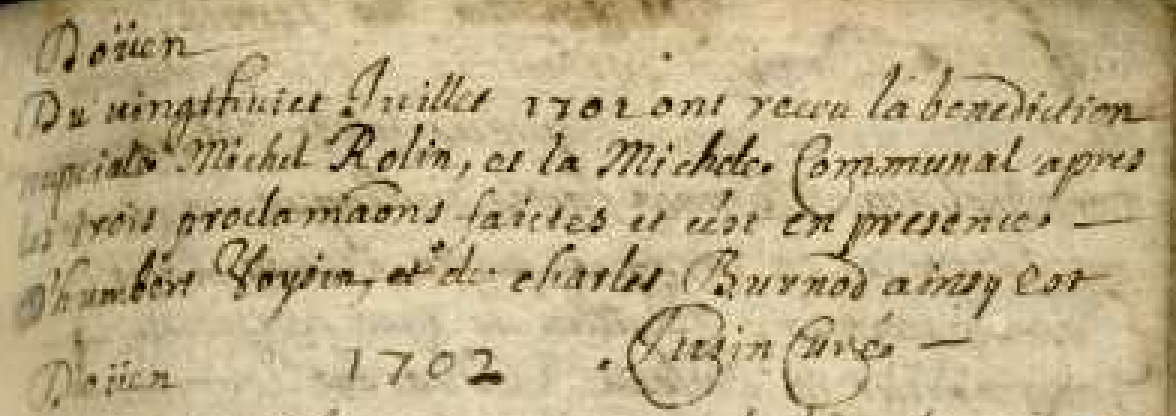 Doüen
Du vingthuict Juillet 1701 ont receu la benediction
nuptiale Michel Rolin, et la Michele Communal apres
les trois proclamaons faictes et cest en presence
d'humbert Voysin, et de charles Burnod ainsy est
Curé
Doüen 1702